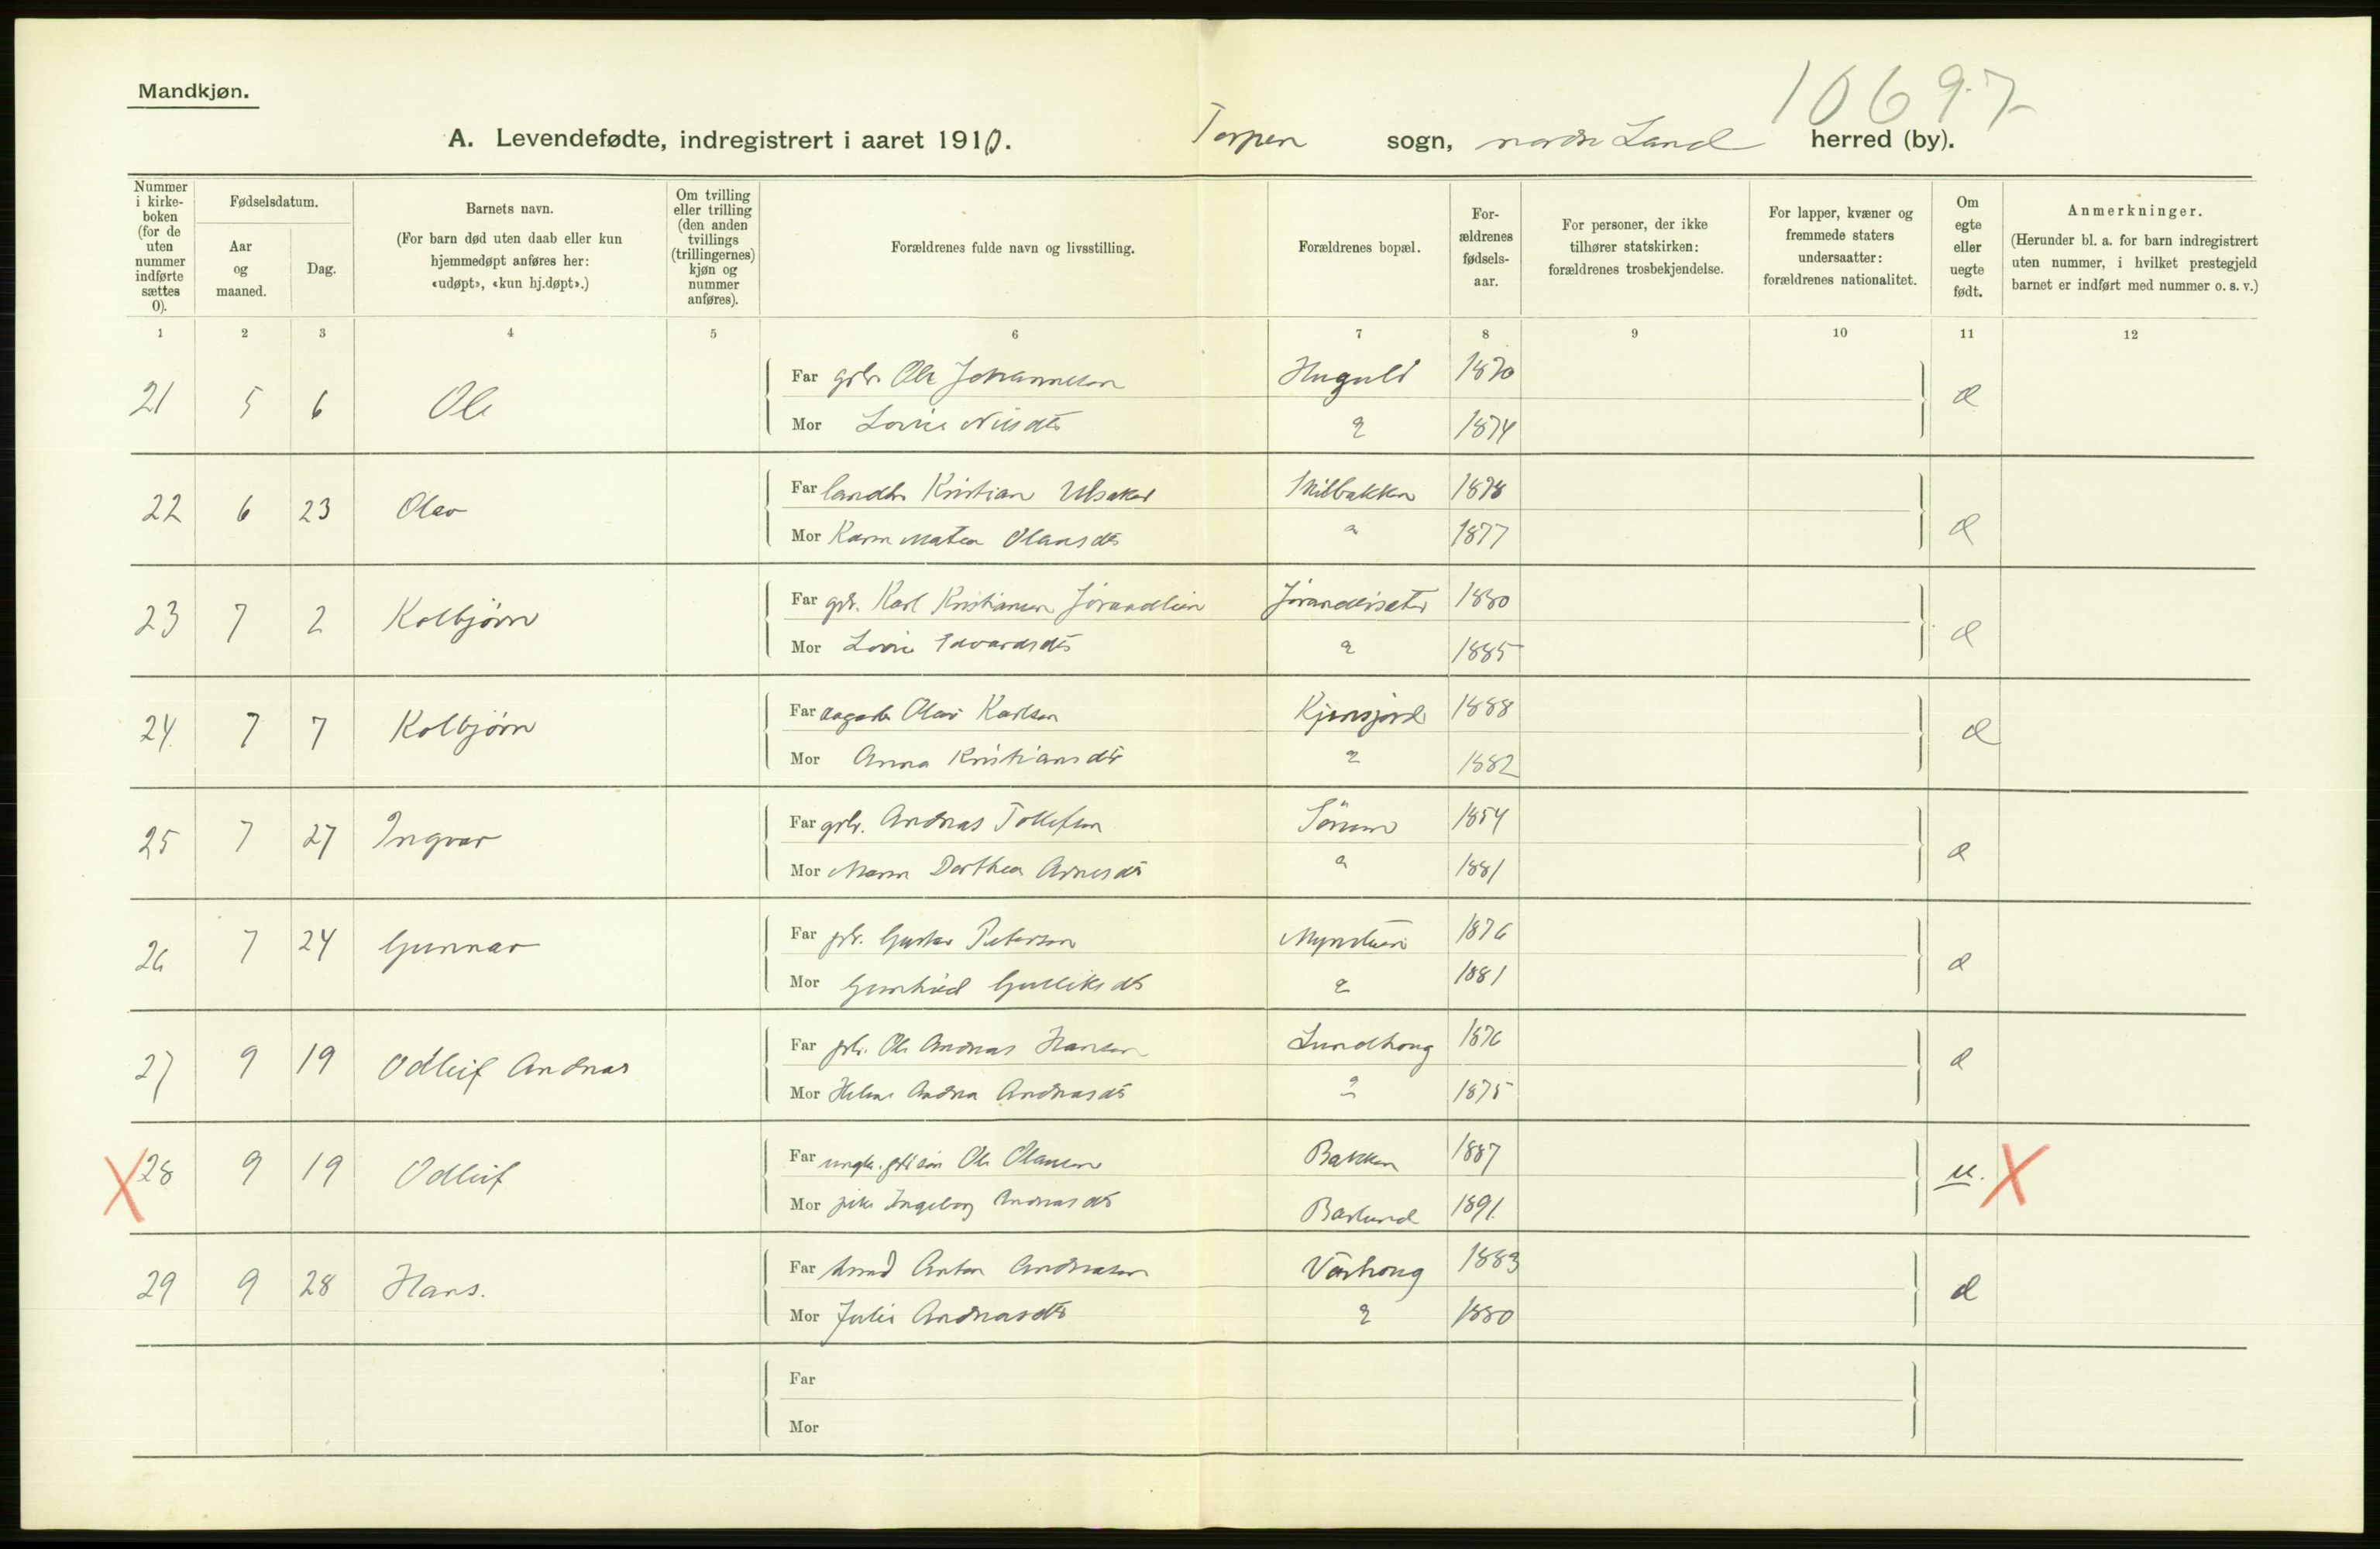 10697
Mandkjøn.
A. Levendefødte, indregistrert i aaret 1910. Torpen sogn, nordre Land herred (by).
Nummer i kirke- boken (for de uten nummer indførte sættes 0).
Fødselsdatum.
Aar og maaned.
Dag.
Barnets navn.
(For barn død uten daab eller kun hjemmedøpt anføres her: «udøpt», «kun hj.døpt».)
Om tvilling eller trilling (den anden tvillings (trillingernes) kjøn og nummer anføres).
Forældrenes fulde navn og livsstilling.
Forældrenes bopæl.
For- ældrenes fødsels- aar.
For personer, der ikke tilhører statskirken: forældrenes trosbekjendelse.
For lapper, kvæner og fremmede staters undersaatter: forældrenes nationalitet.
Om egte eller uegte født.
Anmerkninger.
(Herunder bl. a. for barn indregistrert uten nummer, i hvilket prestegjeld barnet er indført med nummer o. s. v.)
1 2 3 4 5 6 7 8 9 10 11 12
21 5 6 Ole Far gbr. Ole Johannesen 1870
Mor Lovise Nilsdtr 1874
22 6 23 Olav Far Kristian Ulsaker 1878
Mor Karen Matea Olausdtr 1877
23 7 2 Kolbjörn Far gbr. Karl Kristiansen Jörandlien 1880
Mor Lovise Edvardsdtr 1885
24 7 7 Kolbjörn Far Olav Karlsen 1888
Mor Anna Kristiansdtr 1882
25 7 27 Ingvar Far gbr. Andreas Tollefsen Sörum 1854
Mor Maren Dorthea Arnesdtr 1881
26 7 24 Gunnar Far gbr. Gustav Petersen 1876
Mor Gunhild Gulliksdtr 1881
27 9 19 Odleif Andreas Far gbr. Ole Andreas Hansen Lundhoug 1876
Mor Helene Andrea Andreasdtr 1875
X 28 9 19 Odleif Far Ole Olausen Bakken 1887 u. X
Mor pike Ingeborg Andreasdtr 1891
29 9 28 Hans. Far Anton Andreasen 1883
Mor Julie Andreasdtr 1880
Far
Mor